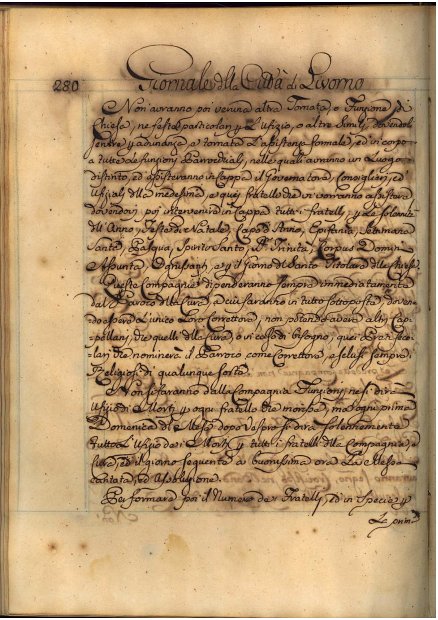 280 Giornale della Città di Livorno
Non avranno poi veruna altra Tornata, o Funzione di
Chiesa, ne feste particolari p l'Ufizio, o altre Simili, dovendosi
p adunanza, e tornata l'assistenza formale, ed in corpo
a tutte le funzioni Parrochiali, nelle quali avranno un Luogo
distinto, ed assisteranno in Cappa il Governatore, Consiglieri, ed
Ufiziali della medesima, e quei fratelli che vi vorranno assistere
dovendovi poi intervenire in Cappa tutti i fratelli p le Solennità
dell'Anno, p Feste di Natale, Capo d'Anno, Epifania, Settimana
Santa, Pasqua, Spirito Santo, SS. Trinità, Corpus Domini
Assunta, Ognissanti, e p il giorno del Santo Titolare della Chiesa
Queste Compagnie dipenderanno sempre immediatamente
dal Paroco della Cura, a cui saranno in tutto sottoposte, doven-
do essere l'unico Loro Correttore, non potendo avere altri Cap-
pellani, che quelli della Cura, o in caso di bisogno, quei Preti Seco-
lari che nominerà il Parroco come Correttore, esclusi sempre i
Religiosi di qualunque sorte.
Non si faranno dalla Compagnia Funzioni, ne si dirà
Ufizio di Morti p ogni fratello che morisse, ma ogni prima
Domenica di Mese dopo Vespro si dirà solennemente
tutto l'Ufizio de i Morti p tutti i fratelli della Compagnia, e
Cura, ed il giorno seguente a buonissima ora La Messa
cantata, ed Assoluzione.
Per formare poi il Numero de i Fratelli, ed in Specie p
La prim